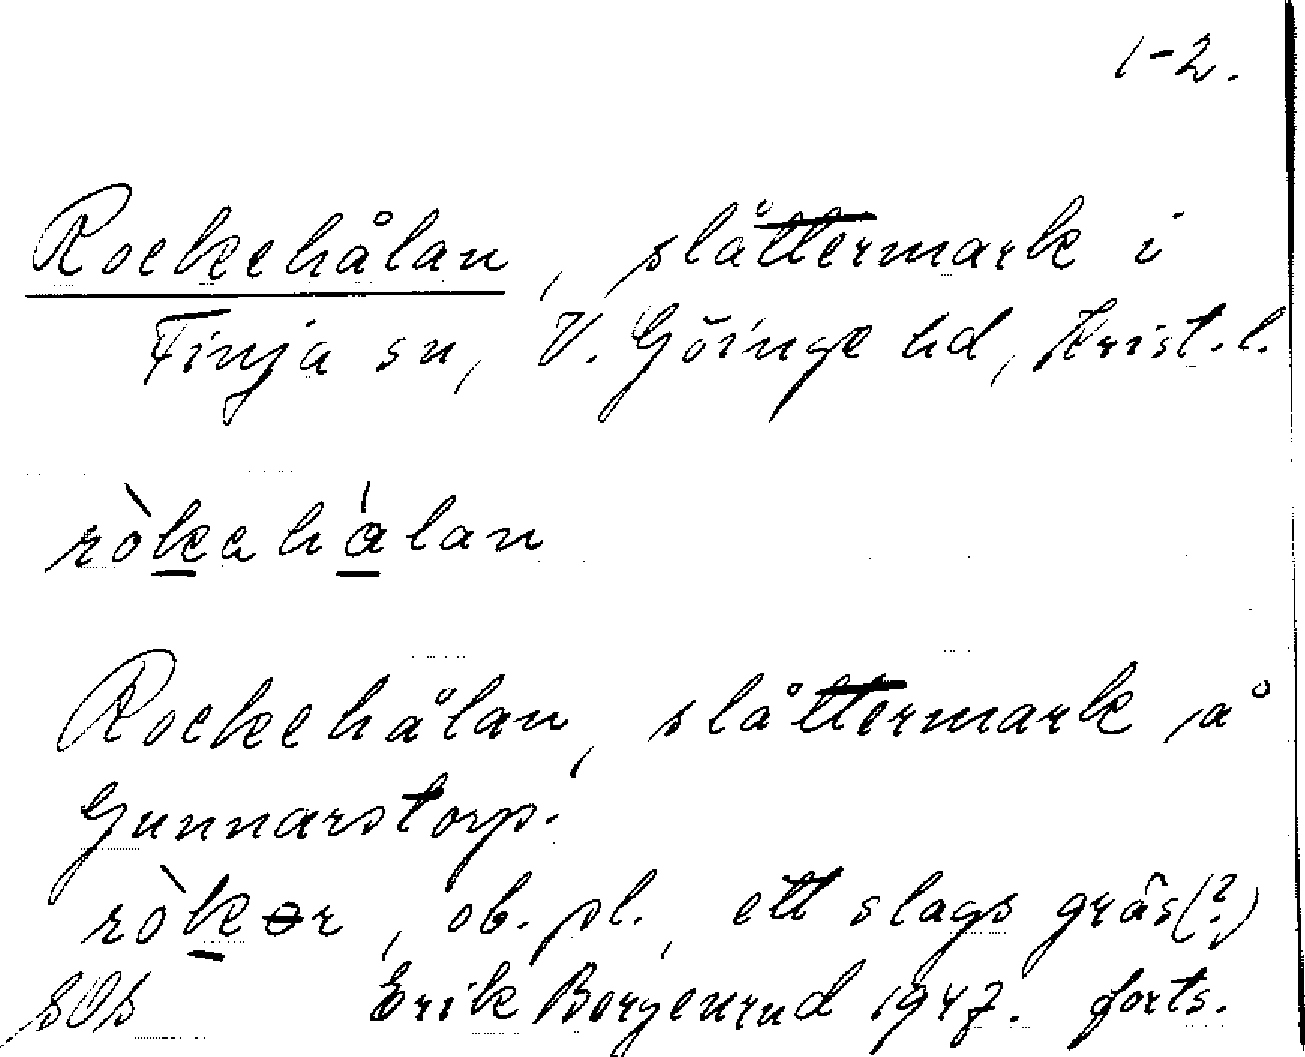 1-2.
Rockehålan, slåttermark i
Finja sn, V. Göinge hd, Krist.l.
ròkahálan
Rockehålan, slåttermark på
Gunnarstorp.
ròkər, ob. pl., ett slags gräs(?)
SOS Erik Borgenrud 1947. forts.